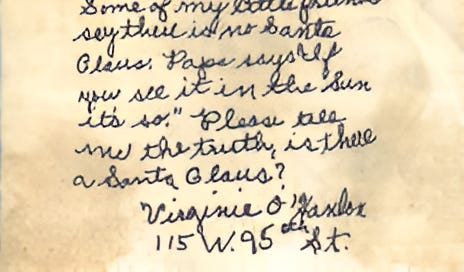 Some of my little friends
say there is no Santa
Claus. Papa says "If
you see it in the Sun
it's so." Please tell
me the truth, is there
a Santa Claus?
Virginia O'Hanlon
115 W. 95th St.